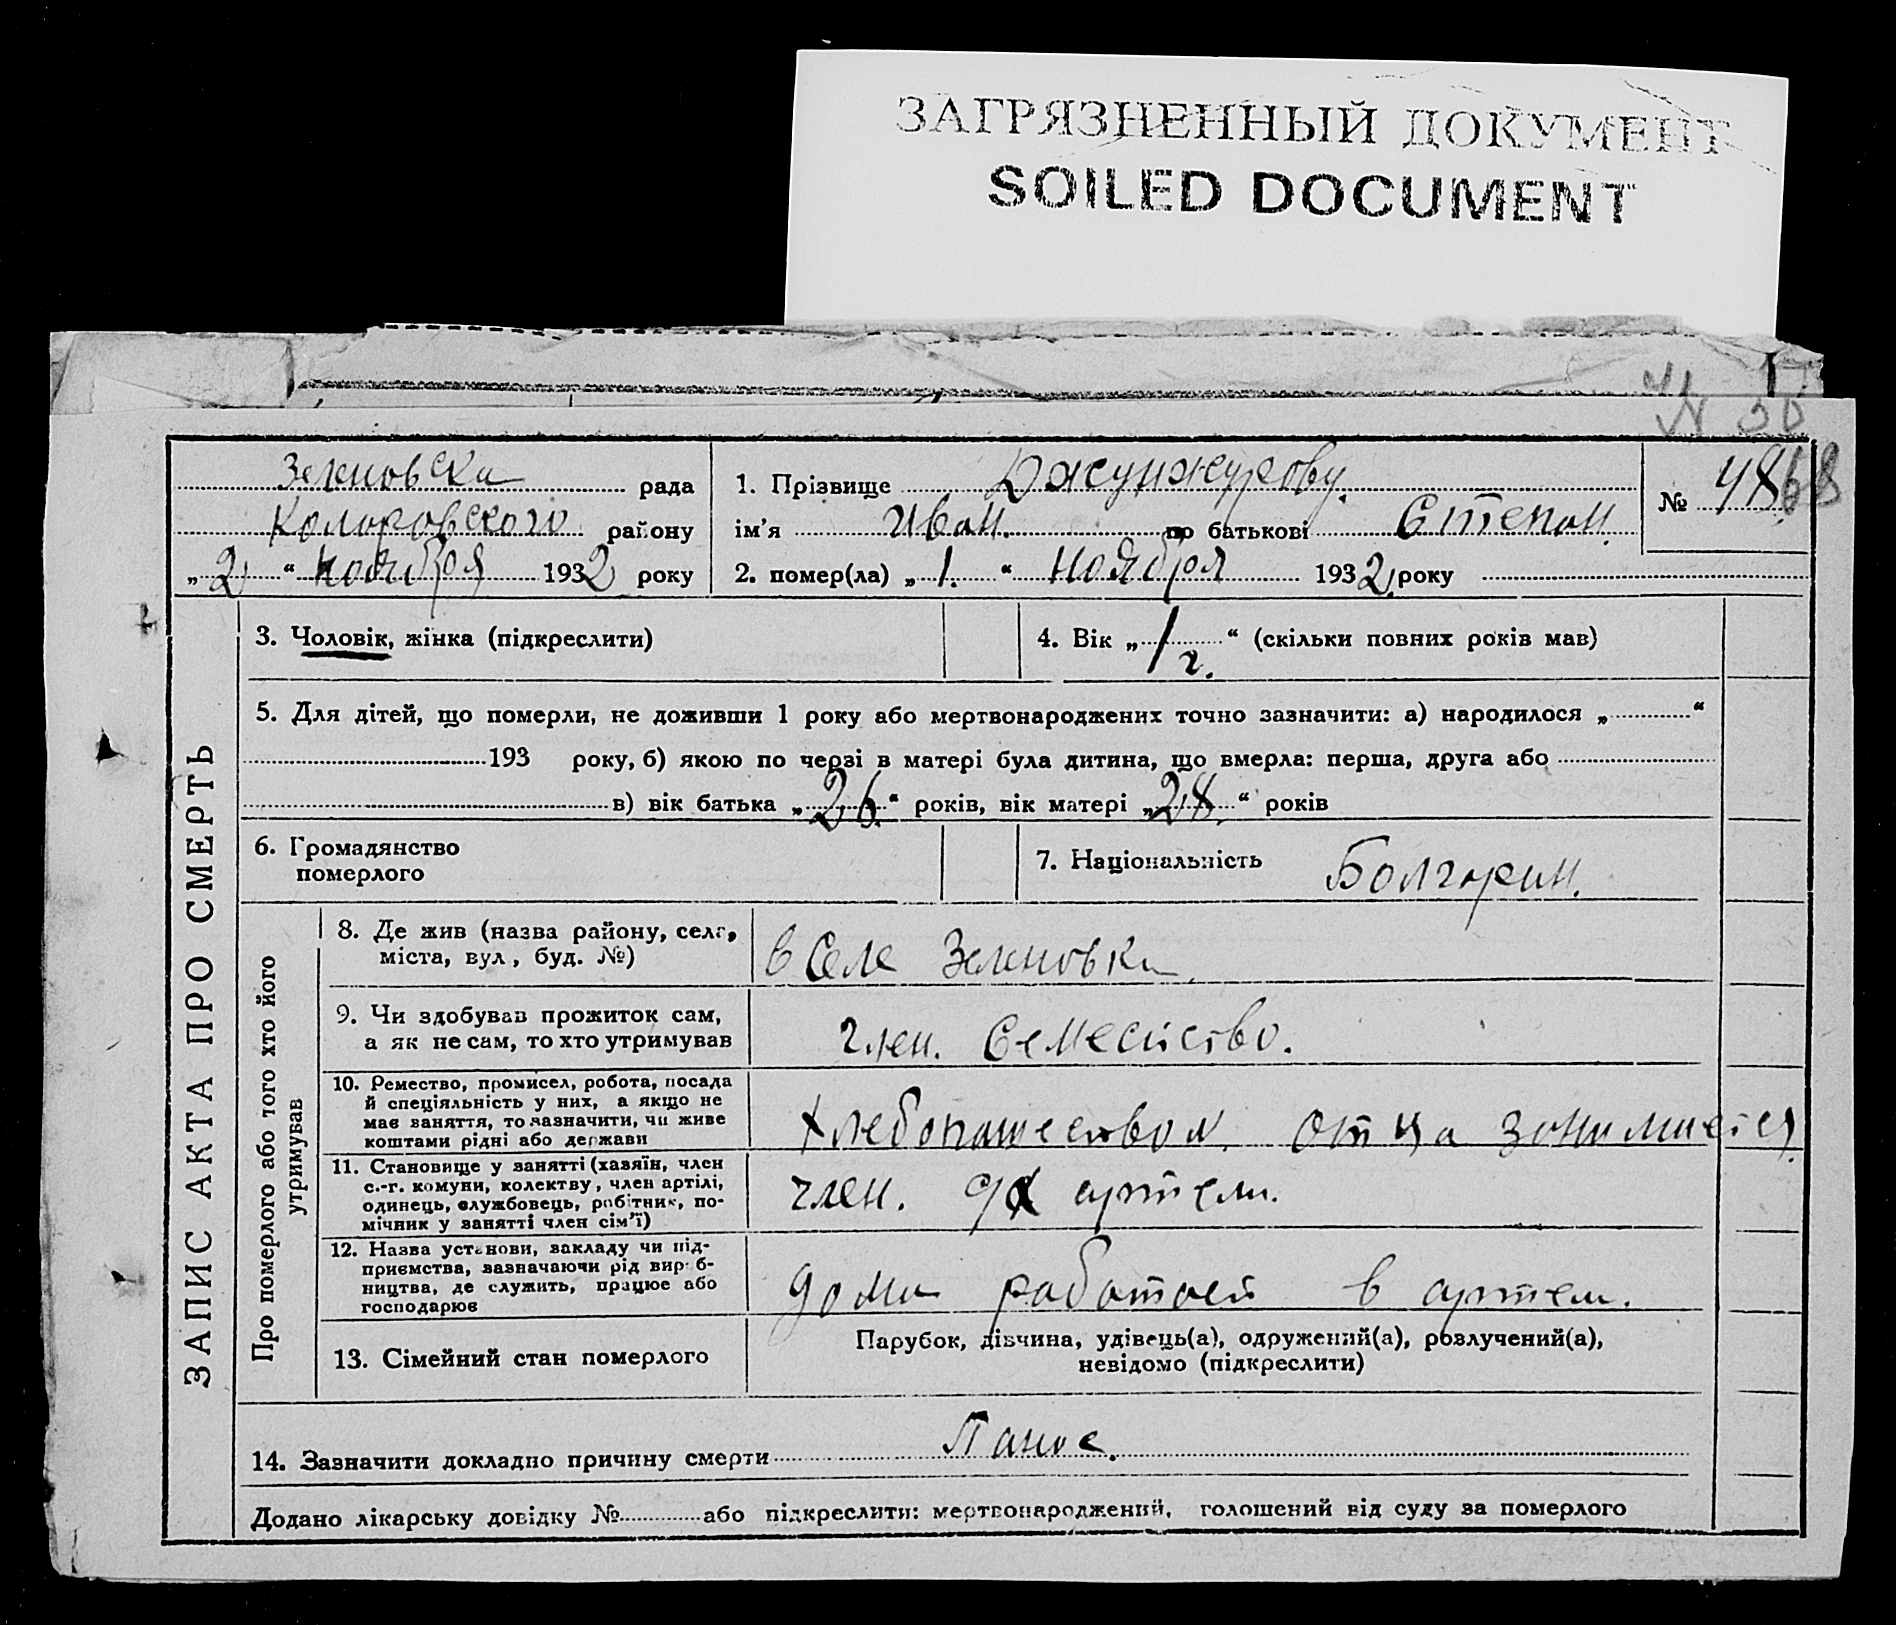 ЗАГРЯЗНЕННЫЙ ДОКУМЕНТ
SOILED DOCUMENT
N 30
Зеленовска рада
Коларовского району
„ 2 “ ноября 1932 року
1. Прізвище Джунжурову.
ім’я Иван. по батькові Степан.
№ 48 68
2. помер(ла) „ 1. “ ноября 1932 року
ЗАПИС АКТА ПРО СМЕРТЬ
3. Чоловік, жінка (підкреслити)
4. Вік „ 1 г. “ (скільки повних років мав)
5. Для дітей, що померли, не доживши 1 року або мертвонароджених точно зазначити: а) народилося „ “
193 року, б) якою по черзі в матері була дитина, що вмерла: перша, друга або
в) вік батька „ 26. “ років, вік матері „ 28. “ років
6. Громадянство
померлого
7. Національність Болгарин.
Про померлого або того хто його
утримував
8. Де жив (назва району, села,
міста, вул., буд. №)
в селе Зеленовка
9. Чи здобував прожиток сам,
а як не сам, то хто утримував
член. Семейство.
10. Ремество, промисел, робота, посада
й спеціяльність у них, а якщо не
має заняття, то зазначити, чи живе
коштами рідні або держави
Хлебопашеством отца
11. Становище у занятті (хазяїн, член
с.-г. комуни, колектву, член артілі,
одинець, службовець, робітник, по-
мічник у занятті член сім’ї)
член. артели.
12. Назва установи, закладу чи під-
приємства, зазначаючи рід вироб-
ництва, де служить, працює або
господарює
дома в артели.
13. Сімейний стан померлого
Парубок, дівчина, удівець(а), одружений(а), розлучений(а),
невідомо (підкреслити)
14. Зазначити докладно причину смерти Панос.
Додано лікарську довідку № або підкреслити: мертвонароджений, голошений від суду за померлого